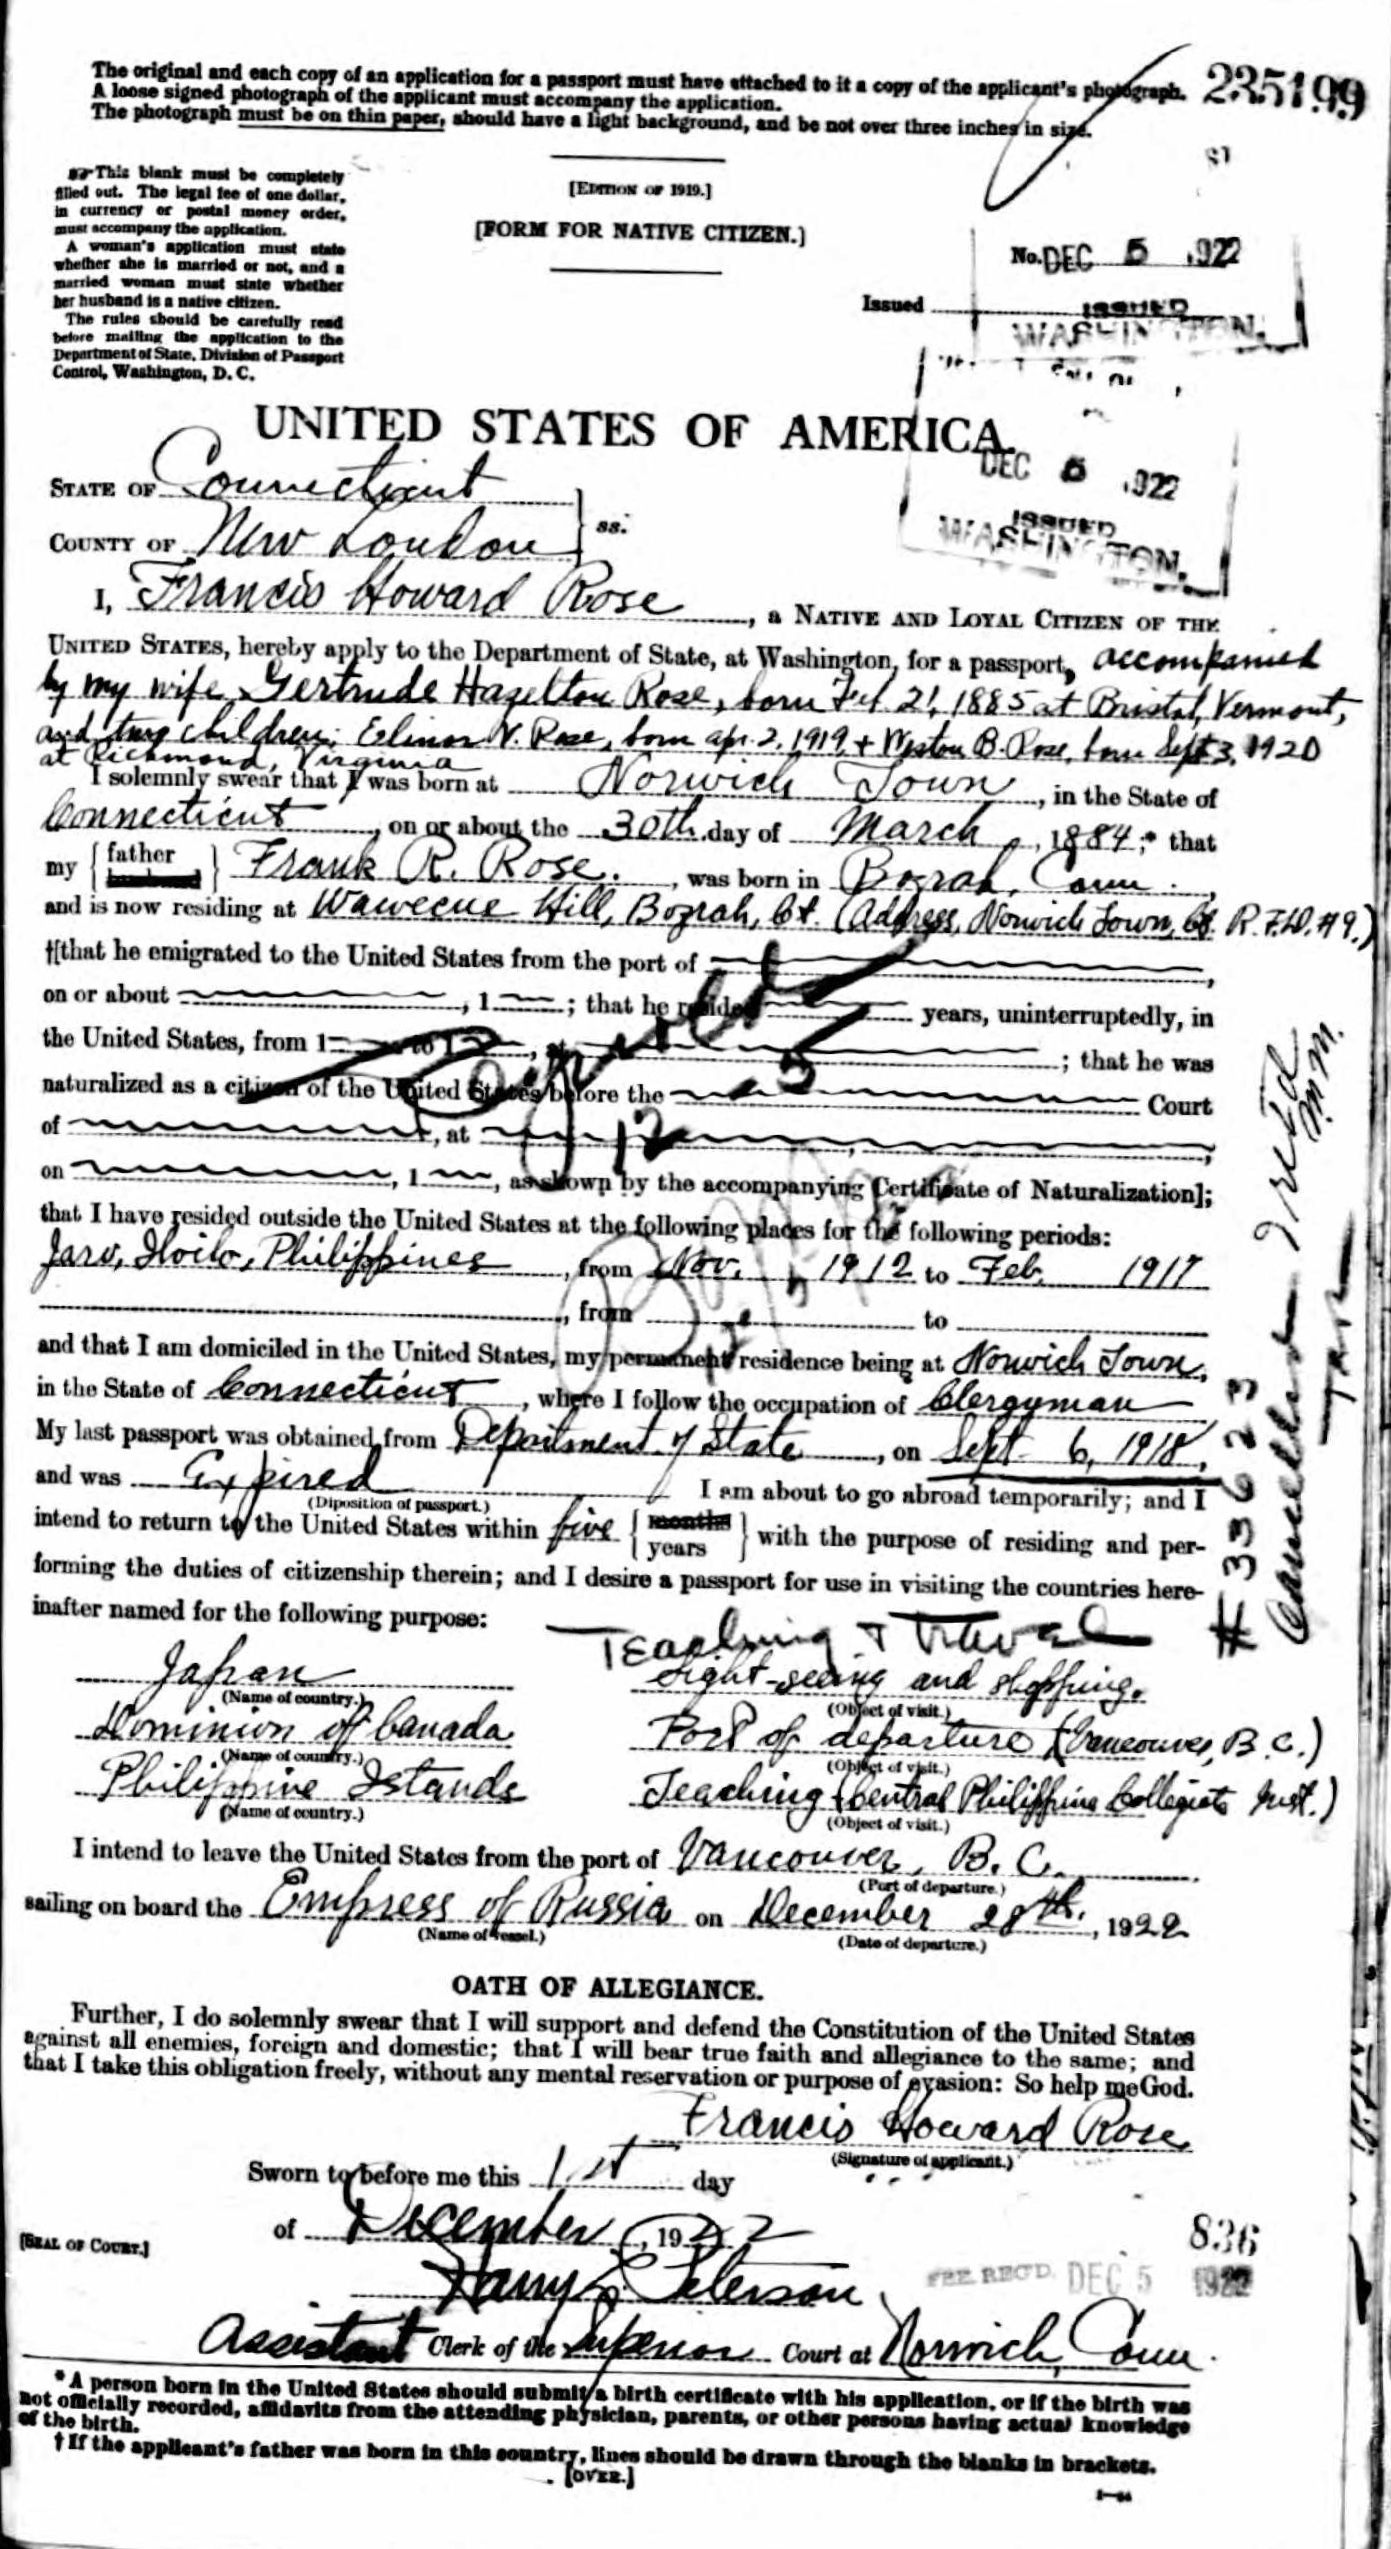 The original and each copy of an application for a passport must have attached to it a copy of the applicant's photograph.
A loose signed photograph of the applicant must accompany the application.
The photograph must be on thin paper, should have a light background, and be not over three inches in size.
235199
This blank must be completely
filled out. The legal fee of one dollar,
in currency or postal money order,
must accompany the application.
A woman's application must state
whether she is married or not, and a
married woman must state whether
her husband is a native citizen.
The rules should be carefully read
before mailing the application to the
Department of State, Division of Passport
Control, Washington, D. C.
[EDITION OF 1919.]
[FORM FOR NATIVE CITIZEN.]
No. DEC 5 1922
Issued
ISSUED
WASHINGTON.
UNITED STATES OF AMERICA.
DEC 5 1922
ISSUED
WASHINGTON.
STATE OF Connecticut
COUNTY OF New London
ss:
I, Francis Howard Rose, a NATIVE AND LOYAL CITIZEN OF THE
UNITED STATES, hereby apply to the Department of State, at Washington, for a passport, accompanied
by my wife, Gertrude Hazelton Rose, born Feb 21, 1885 at Bristol, Vermont,
and two children: Elinor V. Rose, born Apr. 2, 1919, + Weston B. Rose, born Sept 3, 1920
at Richmond, Virginia
I solemnly swear that I was born at Norwich Town, in the State of
Connecticut, on or about the 30th day of March, 1884;* that
my {father} Frank R. Rose, was born in Bozrah, Conn.,
and is now residing at Wawecus Hill, Bozrah, Ct. (Address, Norwich Town, Ct. R.F.D. #9.)
†[that he emigrated to the United States from the port of
on or about , 1 ; that he resided years, uninterruptedly, in
the United States, from 1 to 1 , at ; that he was
naturalized as a citizen of the United States before the Court
of , at ,
on , 1 , as shown by the accompanying Certificate of Naturalization];
that I have resided outside the United States at the following places for the following periods:
Jaro, Iloilo, Philippines, from Nov. 1912 to Feb. 1917
, from to
and that I am domiciled in the United States, my permanent residence being at Norwich Town,
in the State of Connecticut, where I follow the occupation of Clergyman
My last passport was obtained from Department of State, on Sept. 6, 1918,
and was Expired I am about to go abroad temporarily; and I
(Diposition of passport.)
intend to return to the United States within five {months years} with the purpose of residing and per-
forming the duties of citizenship therein; and I desire a passport for use in visiting the countries here-
inafter named for the following purpose:
Teaching + travel
Japan Sight-seeing and shopping.
(Name of country.) (Object of visit.)
Dominion of Canada Port of departure (Vancouver, B.C.)
(Name of country.) (Object of visit.)
Philippine Islands Teaching (Central Philippine Collegiate Inst.)
(Name of country.) (Object of visit.)
I intend to leave the United States from the port of Vancouver, B. C.
(Port of departure.)
sailing on board the Empress of Russia on December 28th, 1922
(Name of vessel.) (Date of departure.)
# 33623
Cancelled
OATH OF ALLEGIANCE.
Further, I do solemnly swear that I will support and defend the Constitution of the United States
against all enemies, foreign and domestic; that I will bear true faith and allegiance to the same; and
that I take this obligation freely, without any mental reservation or purpose of evasion: So help me God.
Francis Howard Rose
(Signature of applicant.)
Sworn to before me this 1st day
of December, 1922
[SEAL OF COURT.]
836
FEE REC'D. DEC 5 1922
Harry L. Peterson
Assistant Clerk of the Superior Court at Norwich, Conn.
*A person born in the United States should submit a birth certificate with his application, or if the birth was
not officially recorded, affidavits from the attending physician, parents, or other persons having actual knowledge
of the birth.
†If the applicant's father was born in this country, lines should be drawn through the blanks in brackets.
[OVER.]